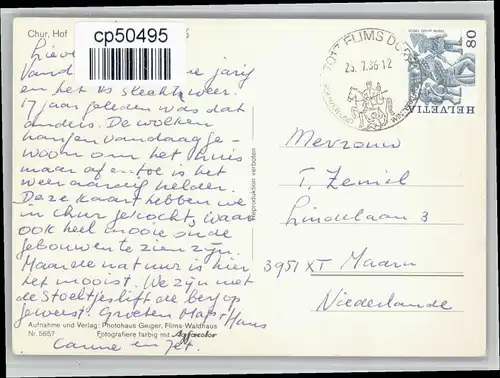 Chur, Hof
cp50495
Lieve
Vandaag is jarig
en het is slecht weer.
17 jaar geleden was dat
anders. De wolken
hangen vandaag ge-
woon om het huis
maar af en toe is het
weer aardig helder.
Deze kaart hebben we
in Chur gekocht, waar
ook heel mooie oude
gebouwen te zien zijn.
Maar de natuur is hier
het mooist. We zijn met
de stoeltjeslift de berg op
geweest. Groeten Hans
Aufnahme und Verlag: Photohaus Geiger, Flims-Waldhaus
Nr. 5657 Fotografiere farbig mit Agfacolor
en Jet.
Reproduktion verboten
7017 FLIMS DORF
23.7.86-12
80
HELVETIA
Mevrouw
T. Zeniel
Lindelaan 3
3951 XT Maarn
Niederlande